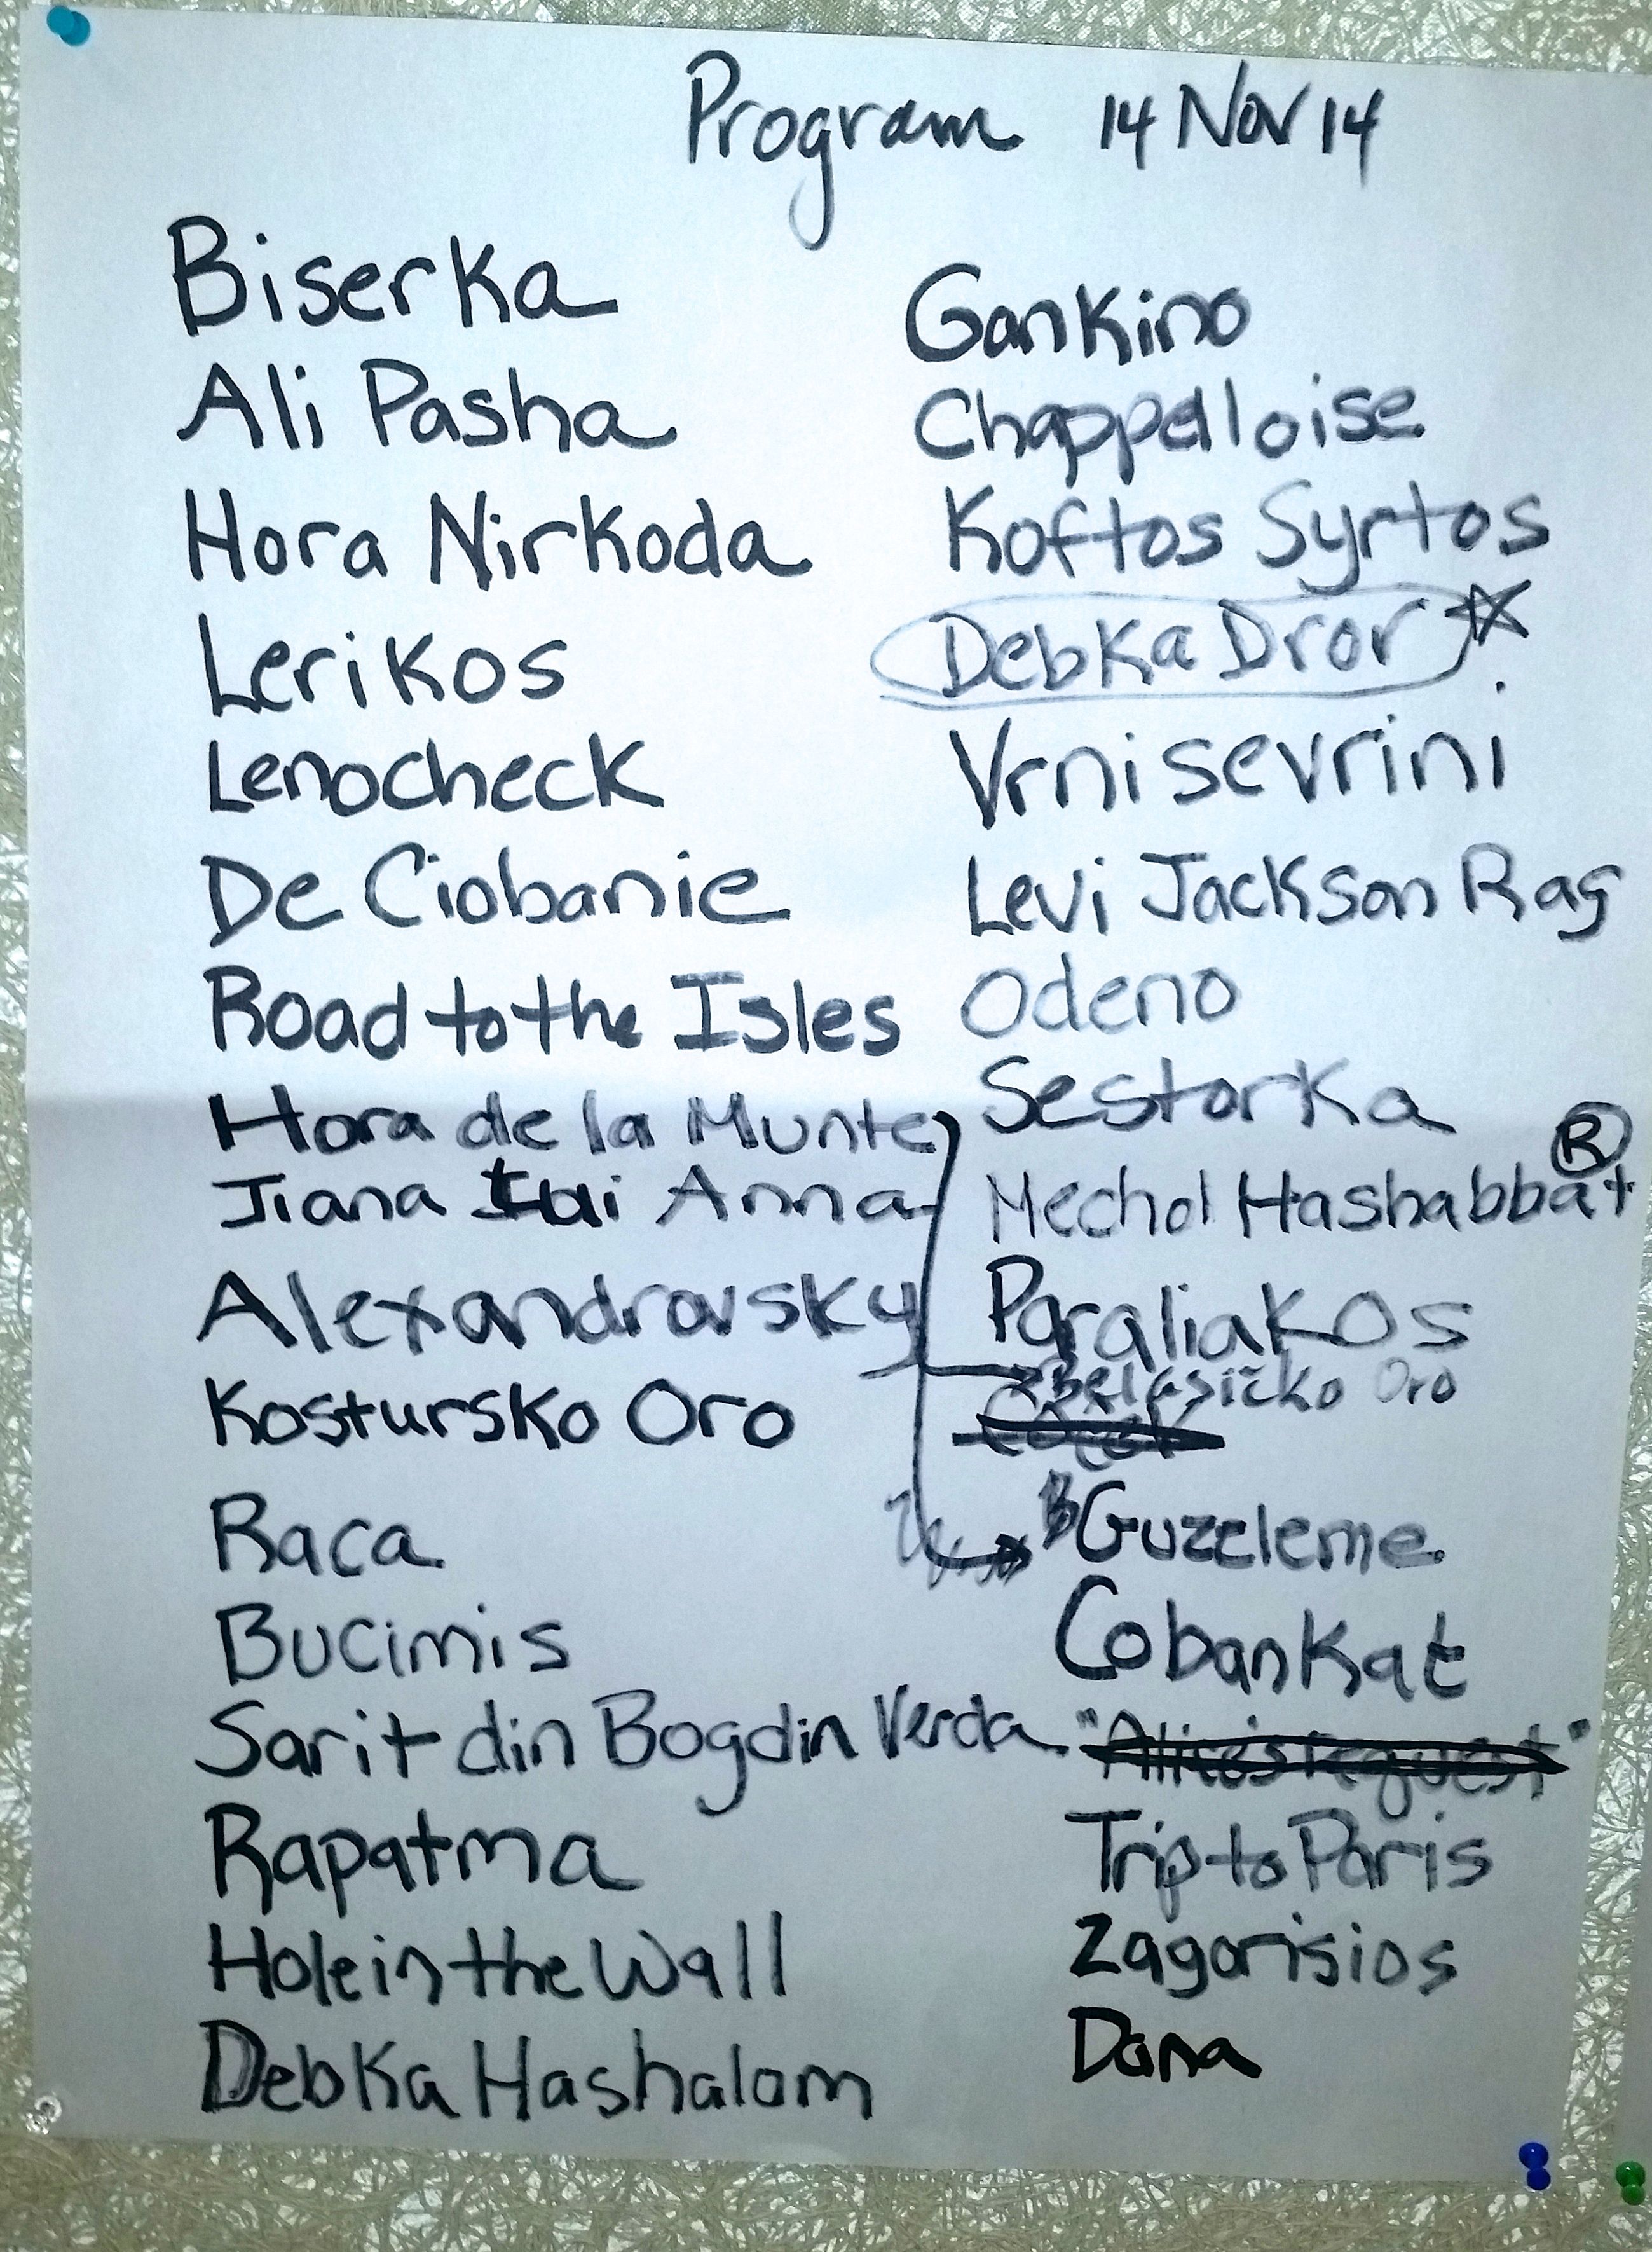 Program 14 Nov 14
Biserka
Ali Pasha
Hora Nirkoda
Lerikos
Lenocheck
De Ciobanie
Road to the Isles
Hora de la Munte
Jiana Anna
Alexandrovsky
Kostursko Oro
Raca
Bucimis
Sarit din Bogdin Verda
Rapatma
Hole in the Wall
Debka Hashalom
Gankino
Chappelloise
Koftos Syrtos
Debka Dror
Vrni sevrini
Levi Jackson Rag
Odeno
Sestorka
R
Mechol Hashabbat
Paraliakos
Belasičko Oro
Guzeleme
Cobankat
"Alice's request"
Trip to Paris
Zagorisios
Dana